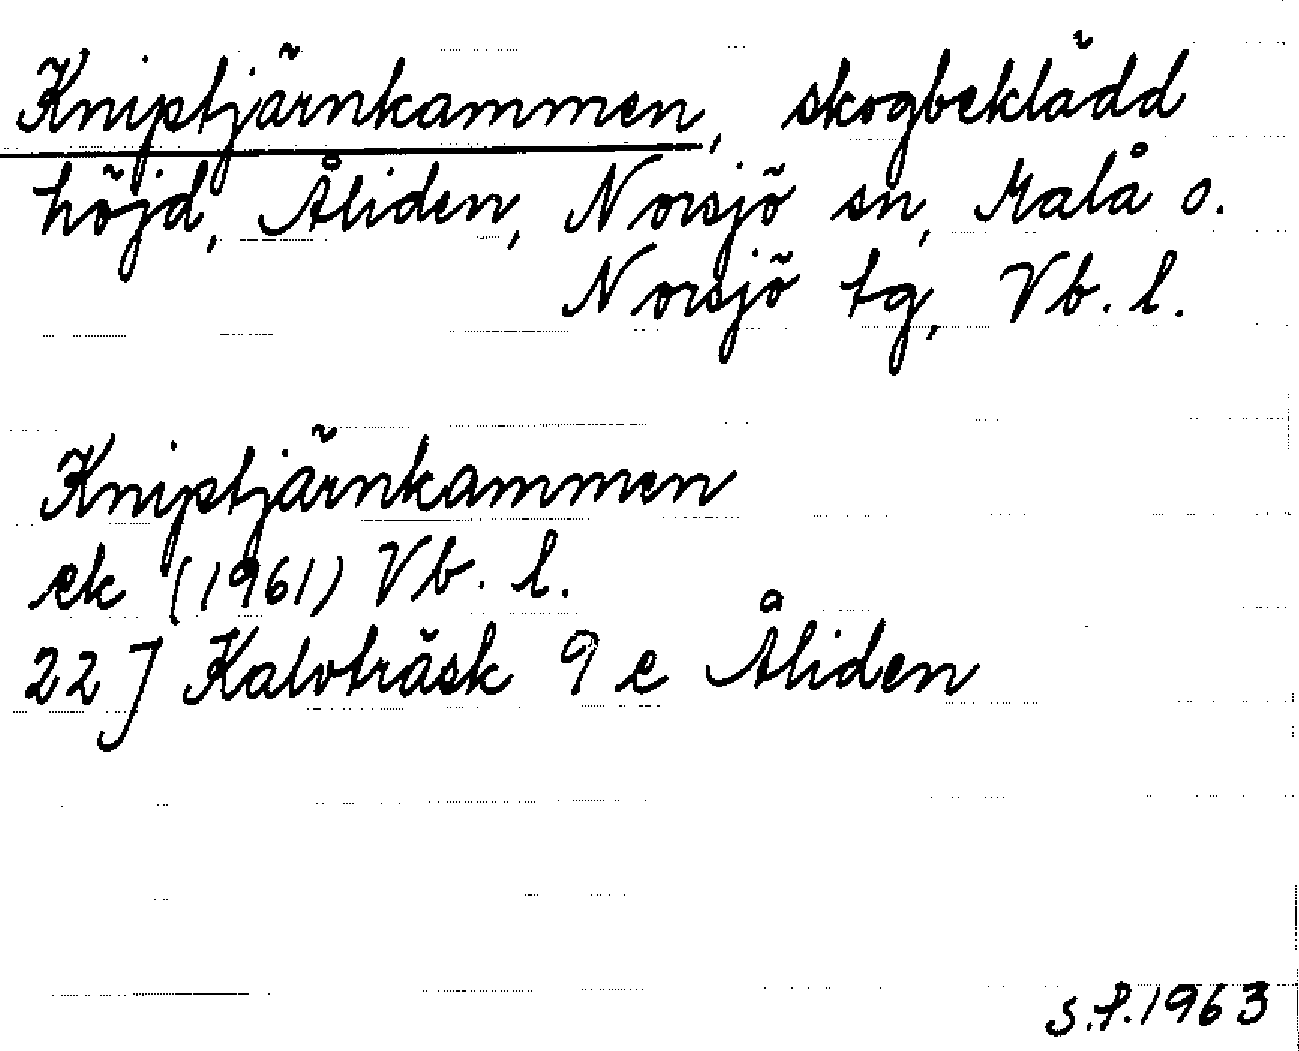 Kniptjärnkammen, skogbeklädd
höjd, Åliden, Norsjö sn, Malå o.
Norsjö tg, Vb. l.
Kniptjärnkammen
ek (1961) Vb. l.
22 J Kalvträsk 9 e Åliden
S.P. 1963